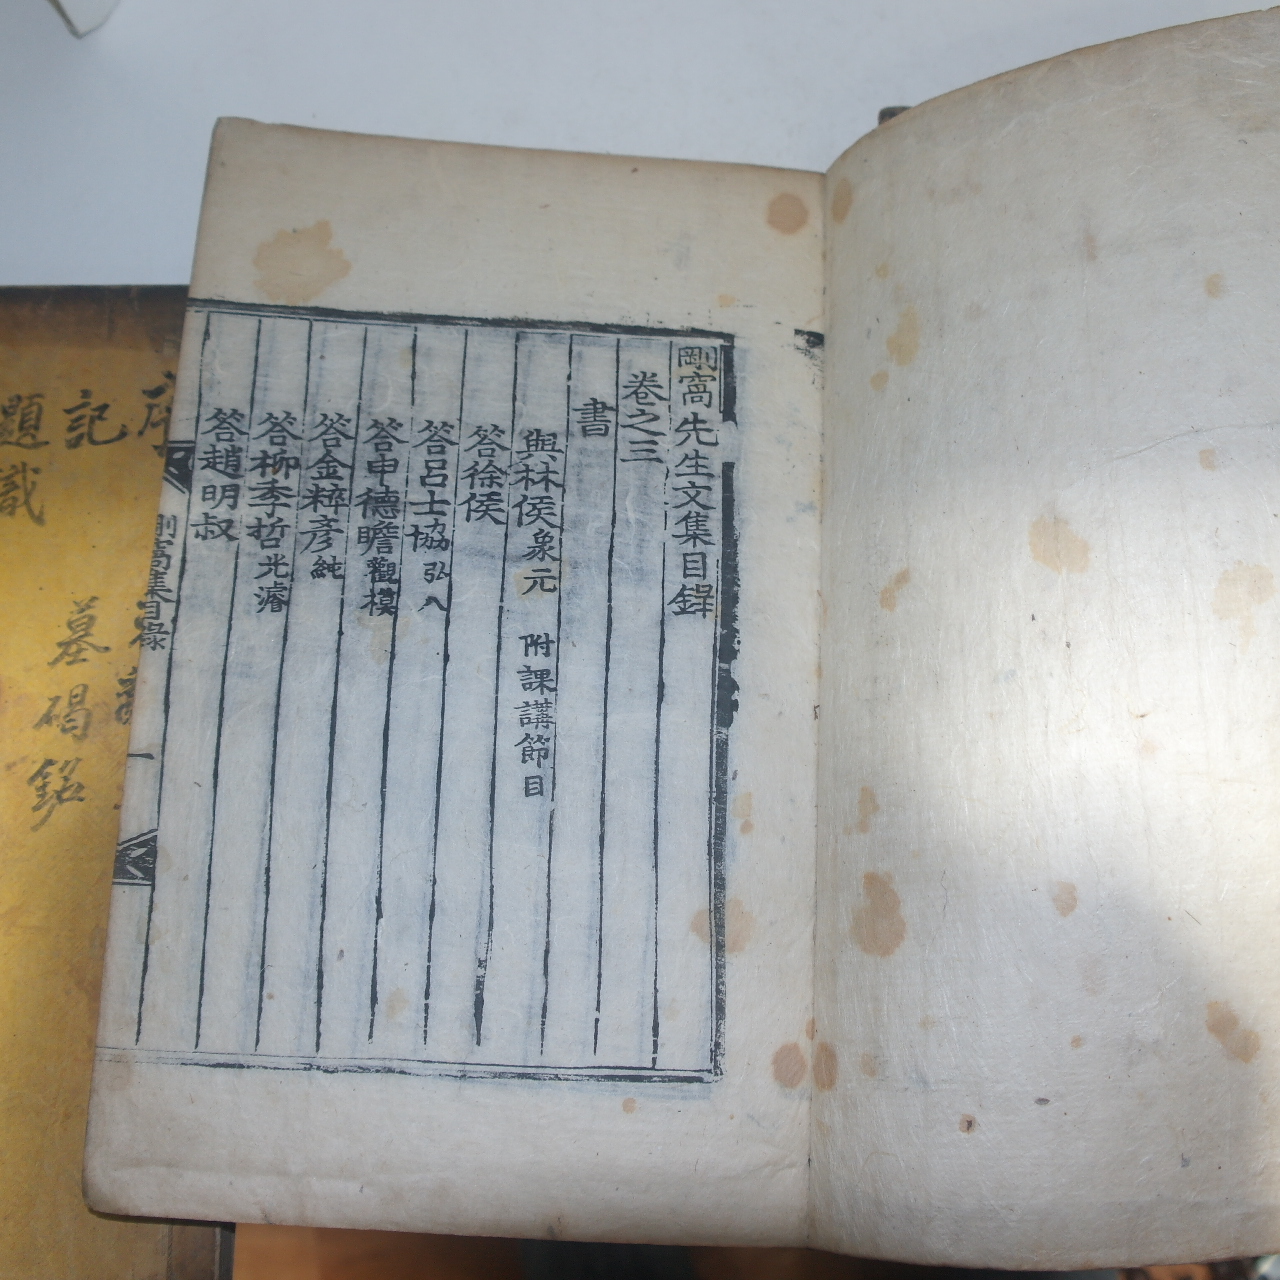 剛窩先生文集目録
卷之三
書
與林侯象元 附課講節目
答徐侯
答呂士協弘八
答申德瞻觀模
答金粹彦純
答柳季哲光濬
答趙明叔
剛窩集目錄 一
序
記
題識
墓碣銘